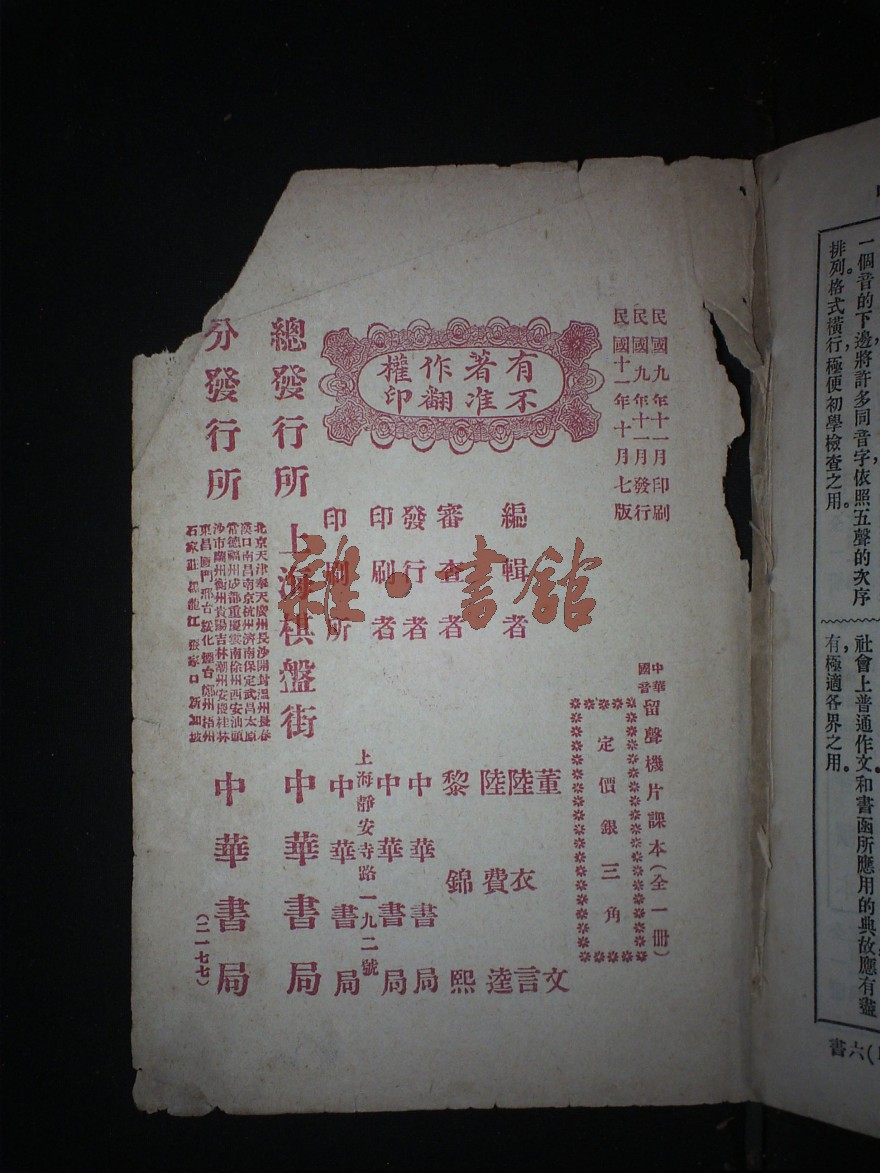 民國九年十一月印刷
民國九年十一月發行
民國十一年十月七版
有著作權
不准翻印
中華國音留聲機片課本(全一冊)
定價銀三角
編輯者
董文
陸衣言
陸費逵
審查者
黎錦熙
發行者
中華書局
印刷者
中華書局
上海靜安寺路一九二號
印刷所
中華書局
總發行所
上海棋盤街
中華書局
分發行所
北京天津奉天廣州長沙開封溫州長春
漢口南昌南京杭州濟南保定武昌太原
常德福州成都重慶雲南徐州西安汕頭
沙市蘭州衡州貴陽吉林潮州安慶桂林
東昌廈門邢台綏化煙台鄭州梧州
石家莊 黑龍江 張家口 新加坡
中華書局
(二一七七)
雜·書館
一個音的下邊，將許多同音字，依照五聲的次序
排列。格式橫行，極便初學檢查之用。
社會上普通作文，和書函所應用的典故，應有盡
有，極適各界之用。
六書